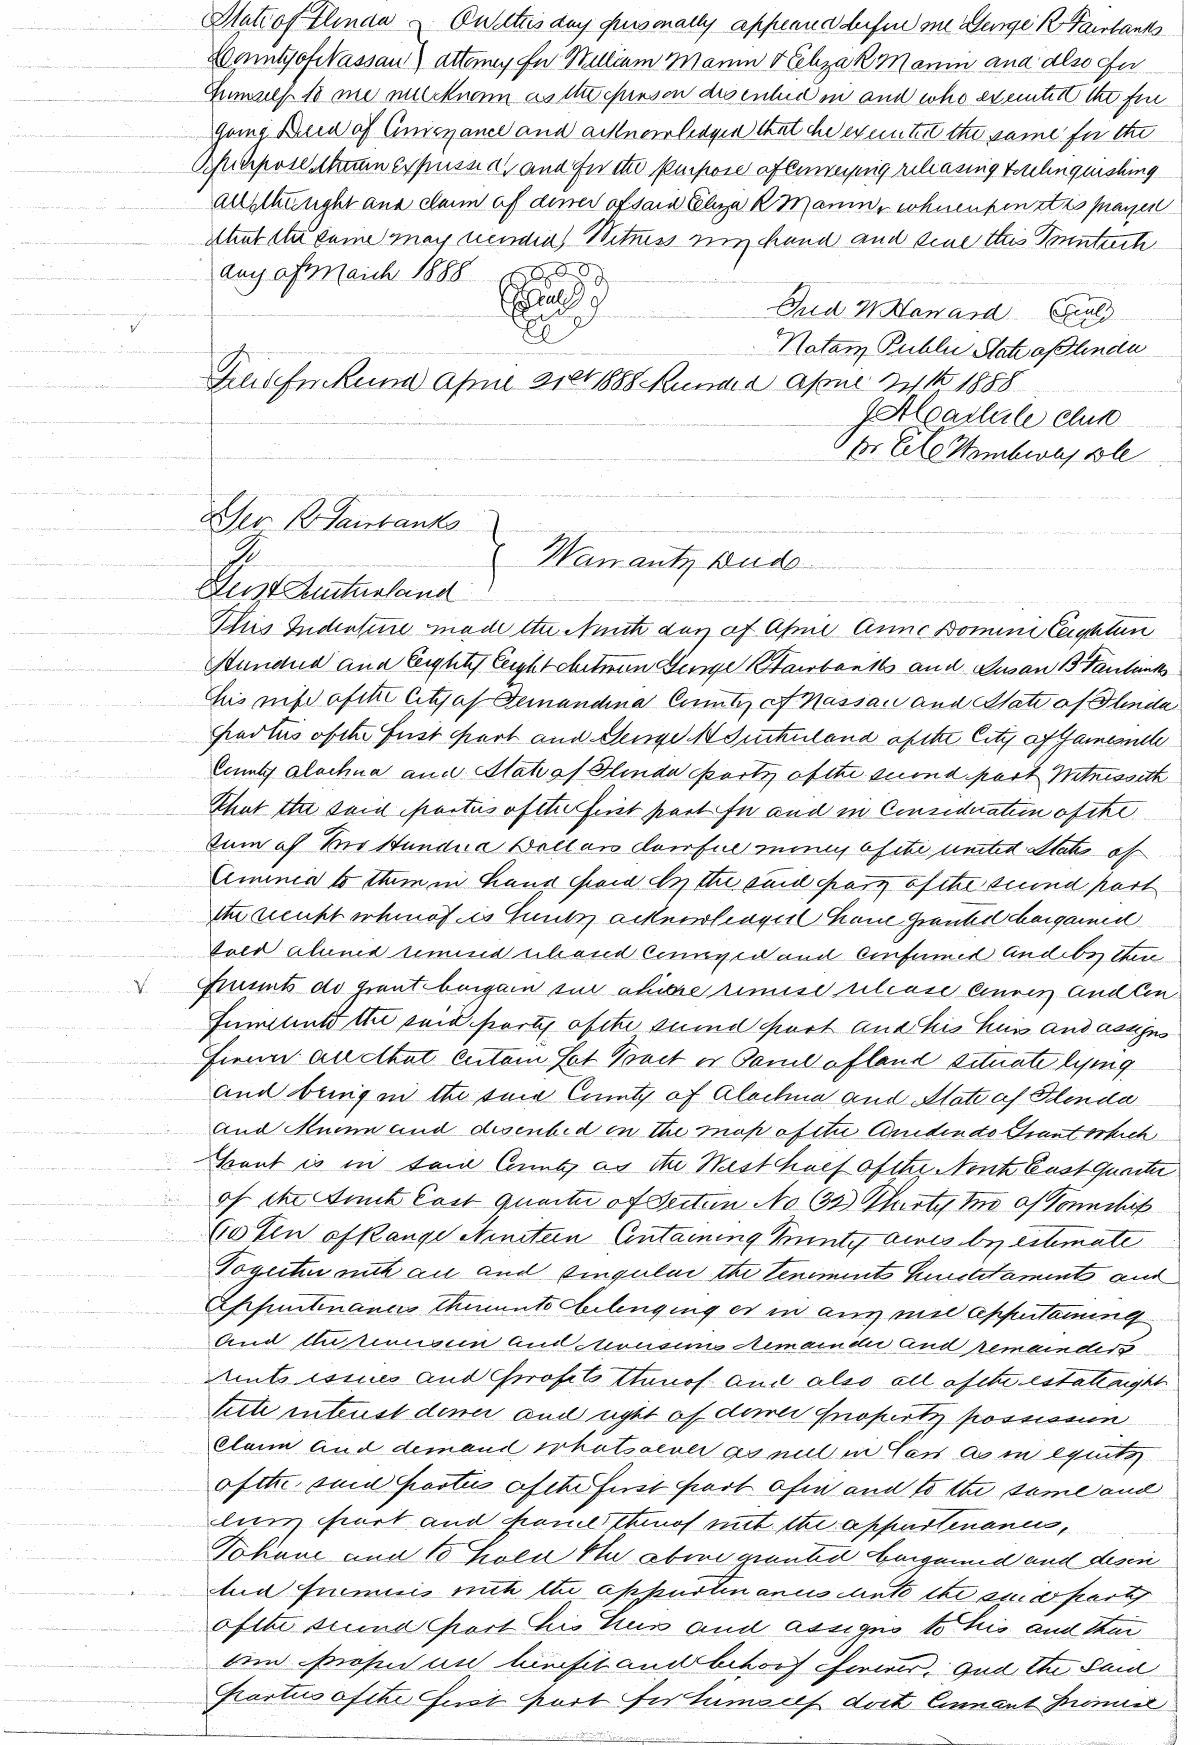 State of Florida } On this day personally appeared before me George R Fairbanks
County of Nassau } attorney for William Marvin & Eliza R Marvin and also for
himself to me well known as the person described in and who executed the fore
going Deed of Conveyance and acknowledged that he executed the same for the
purpose therein expressed, and for the purpose of Conveying releasing & relinquishing
all the right and claim of dower of said Eliza R Marvin, whereupon it is prayed
that the same may recorded, Witness my hand and seal this Twentieth
day of March 1888
Seal
Fred W Howard Seal
Notary Public State of Florida
Filed for Record April 21st 1888 Recorded April 24th 1888
J A Carlisle Clerk
pr
Geo R Fairbanks
To
Sutherland
Warranty Deed
This Indenture made the Ninth day of April Anno Domini Eighteen
Hundred and Eighty Eight between George R Fairbanks and Susan B Fairbanks
his wife of the City of Fernandina County of Nassau and State of Florida
parties of the first part and George Sutherland of the City of Gainesville
County Alachua and State of Florida party of the second part Witnesseth
That the said parties of the first part for and in Consideration of the
sum of Two Hundred Dollars lawful money of the united States of
America to them in hand paid by the said party of the second part
the receipt whereof is hereby acknowledged have granted bargained
sold aliened remised released conveyed and confirmed and by these
presents do grant bargain sell aliene remise release convey and Con
firm unto the said party of the second part and his heirs and assigns
forever all that certain Lot Tract or Parcel of land situate lying
and being in the said County of Alachua and State of Florida
and Known and described on the map of the Arredondo Grant which
Grant is in said County as the West half of the North East Quarter
of the South East quarter of Section No (32) Thirty two of Township
(10) Ten of Range Nineteen Containing Twenty acres by estimate
Together with all and singular the tenements hereditaments and
Appurtenances thereunto belonging or in any wise appertaining
and the reversion and reversions remainder and remainders
rents issues and profits thereof and also all of the estate right
title interest dower and right of dower property possession
claim and demand whatsoever as well in Law as in equity
of the said parties of the first part of in and to the same and
every part and parcel thereof with the appurtenances,
To have and to hold the above granted bargained and descri
bed premises with the appurtenances unto the said party
of the second part his heirs and assigns to his and their
own proper use benefit and behoof forever, and the said
Parties of the first part for himself doth Covenant promise